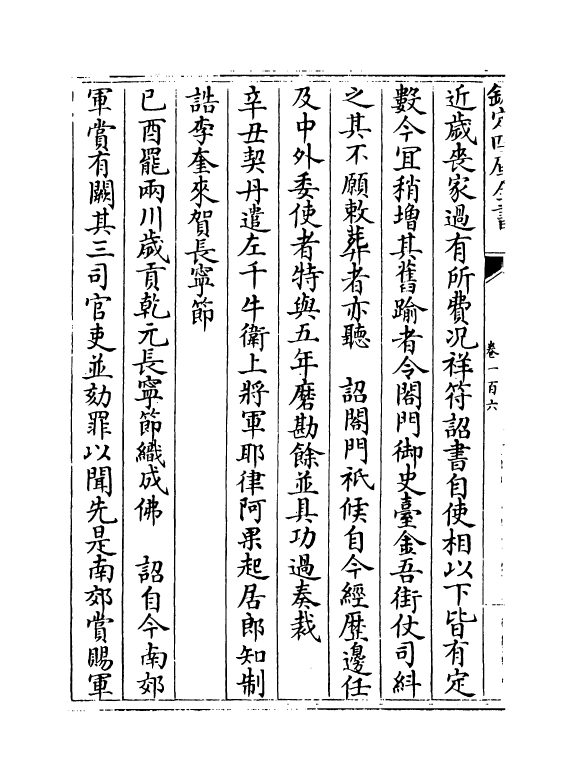 欽定四庫全書
卷一百六
近歲喪家過有所費况祥符詔書自使相以下皆有定
數今宜稍增其舊踰者令閤門御史臺金吾街仗司糾
之其不願敕葬者亦聽　詔閤門祗候自今經歷邊任
及中外委使者特與五年磨勘餘並具功過奏裁
辛丑契丹遣左千牛衛上將軍耶律阿果起居郎知制
誥李奎來賀長寧節
已酉罷兩川歲貢乾元長寧節織成佛　詔自今南郊
軍賞有闕其三司官吏並劾罪以聞先是南郊賞賜軍